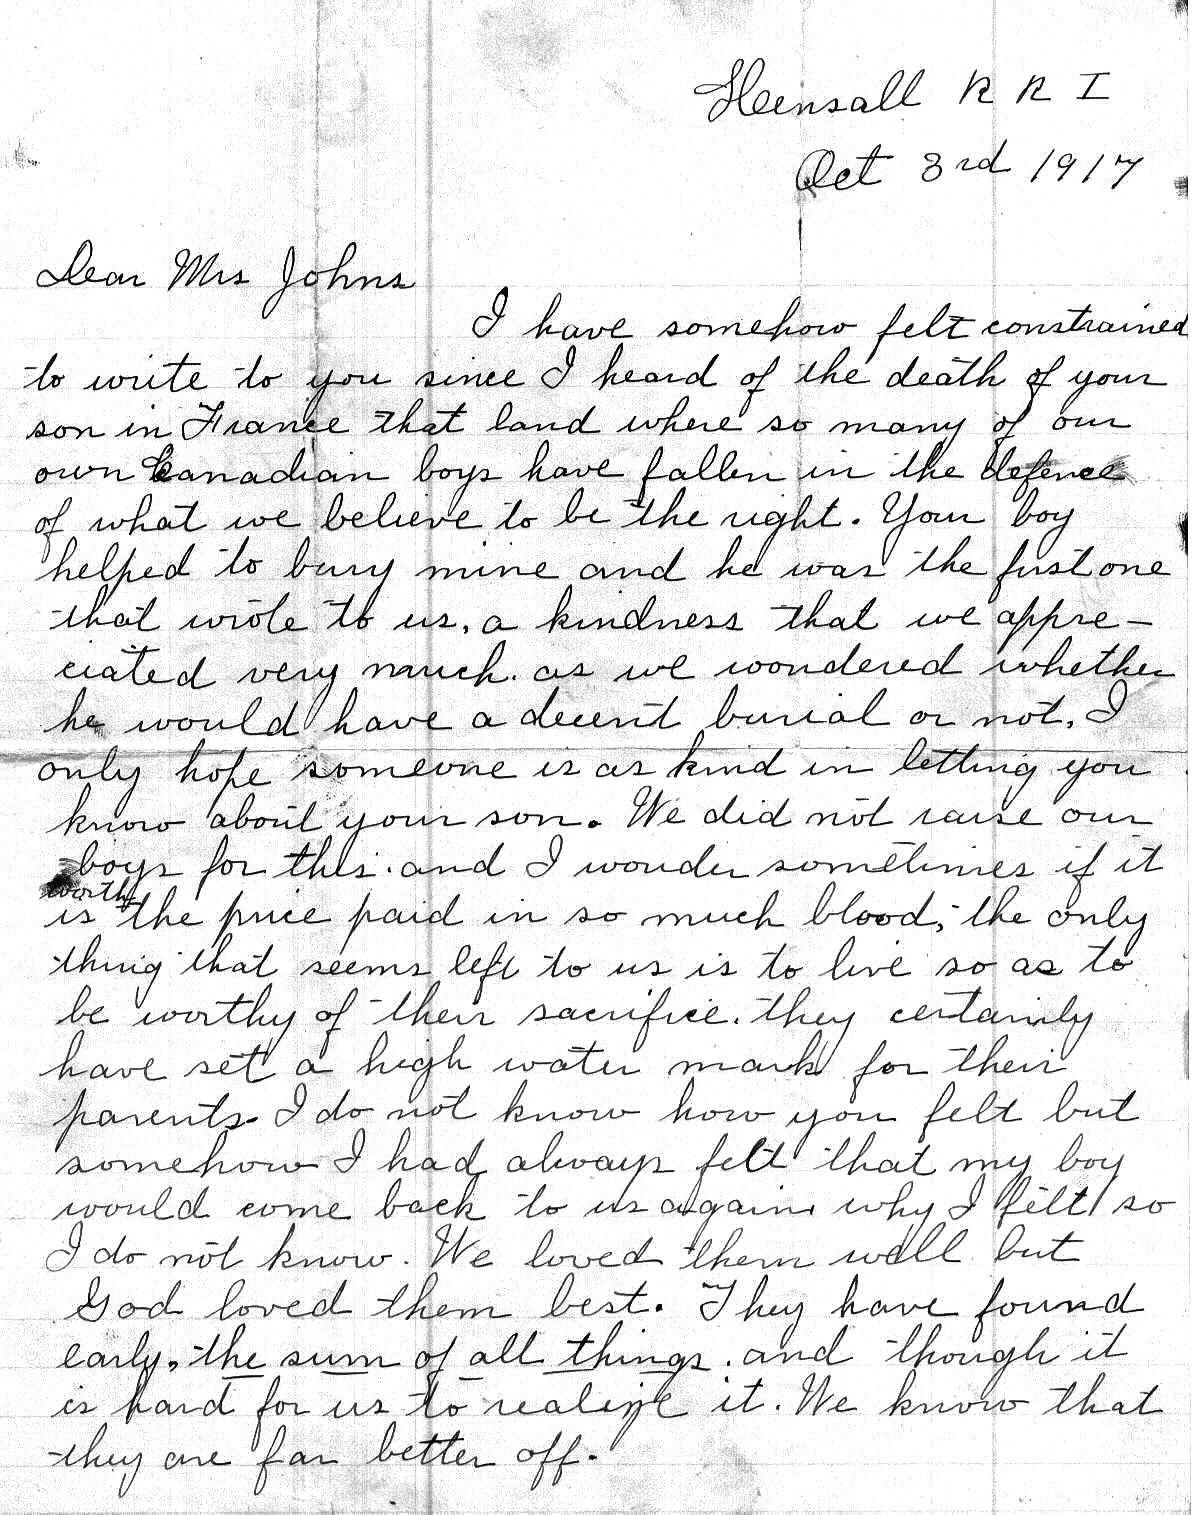 Hensall R R I
Oct 3rd 1917
Dear Mrs Johns
I have somehow felt constrained
to write to you since I heard of the death of your
son in France that land where so many of our
own Canadian boys have fallen in the defence
of what we believe to be the right. Your boy
helped to bury mine and he was the first one
that wrote to us, a kindness that we appre-
ciated very much. as we wondered whether
he would have a decent burial or not, I
only hope someone is as kind in letting you
know about your son. We did not raise our
boys for this. and I wonder sometimes if it
worth
is the price paid in so much blood, the only
thing that seems left to us is to live so as to
be worthy of their sacrifice. they certainly
have set a high water mark for their
parents. I do not know how you felt but
somehow I had always felt that my boy
would come back to us again why I felt so
I do not know. We loved them well but
God loved them best. They have found
early, the sum of all things. and though it
is hard for us to realize it. We know that
they are far better off.